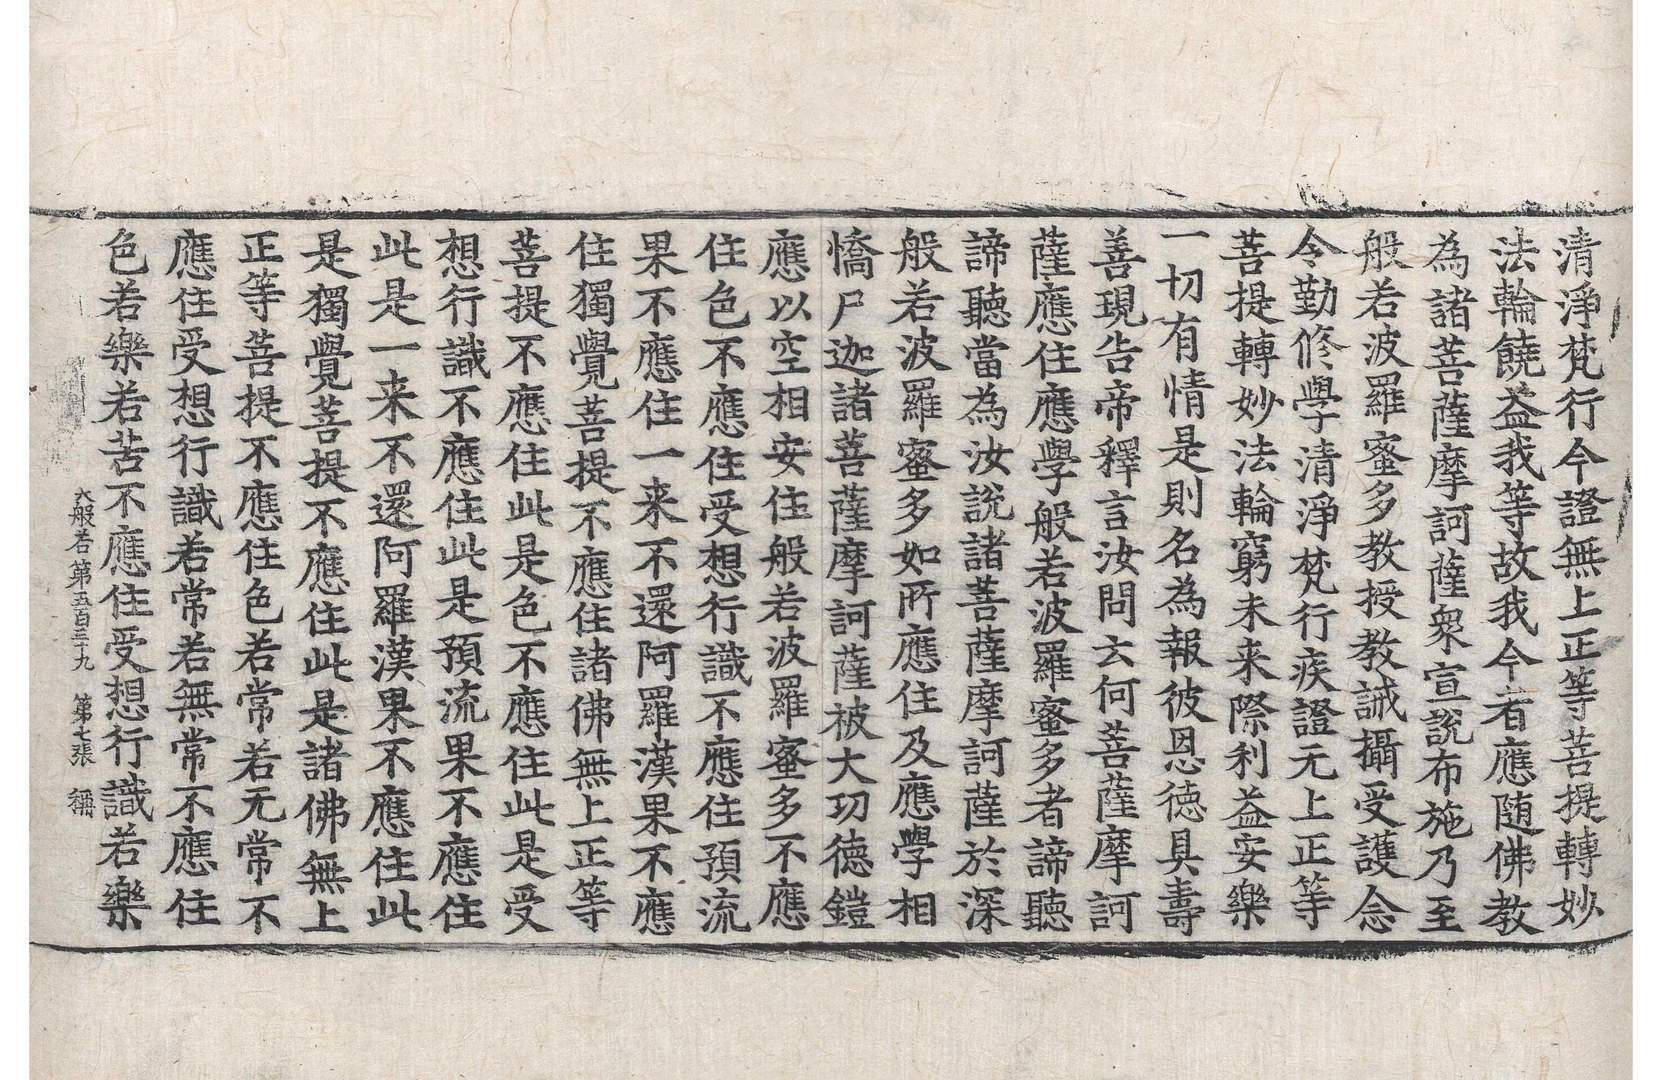 清淨梵行今證無上正等菩提轉妙
法輪饒益我等故我今者應随佛教
為諸菩薩摩訶薩衆宣說布施乃至
般若波羅蜜多教授教誡攝受護念
令勤修學清淨梵行疾證无上正等
菩提轉妙法輪窮未来際利益安樂
一切有情是則名為報彼恩徳具壽
善現告帝釋言汝問云何菩薩摩訶
薩應住應學般若波羅蜜多者諦聽
諦聽當為汝說諸菩薩摩訶薩於深
般若波羅蜜多如所應住及應學相
憍尸迦諸菩薩摩訶薩被大功徳鎧
應以空相安住般若波羅蜜多不應
住色不應住受想行識不應住預流
果不應住一来不還阿羅漢果不應
住獨覺菩提不應住諸佛無上正等
菩提不應住此是色不應住此是受
想行識不應住此是預流果不應住
此是一来不還阿羅漢果不應住此
是獨覺菩提不應住此是諸佛無上
正等菩提不應住色若常若无常不
應住受想行識若常若無常不應住
色若樂若苦不應住受想行識若樂
大般若第五百三十九 第七張 稱